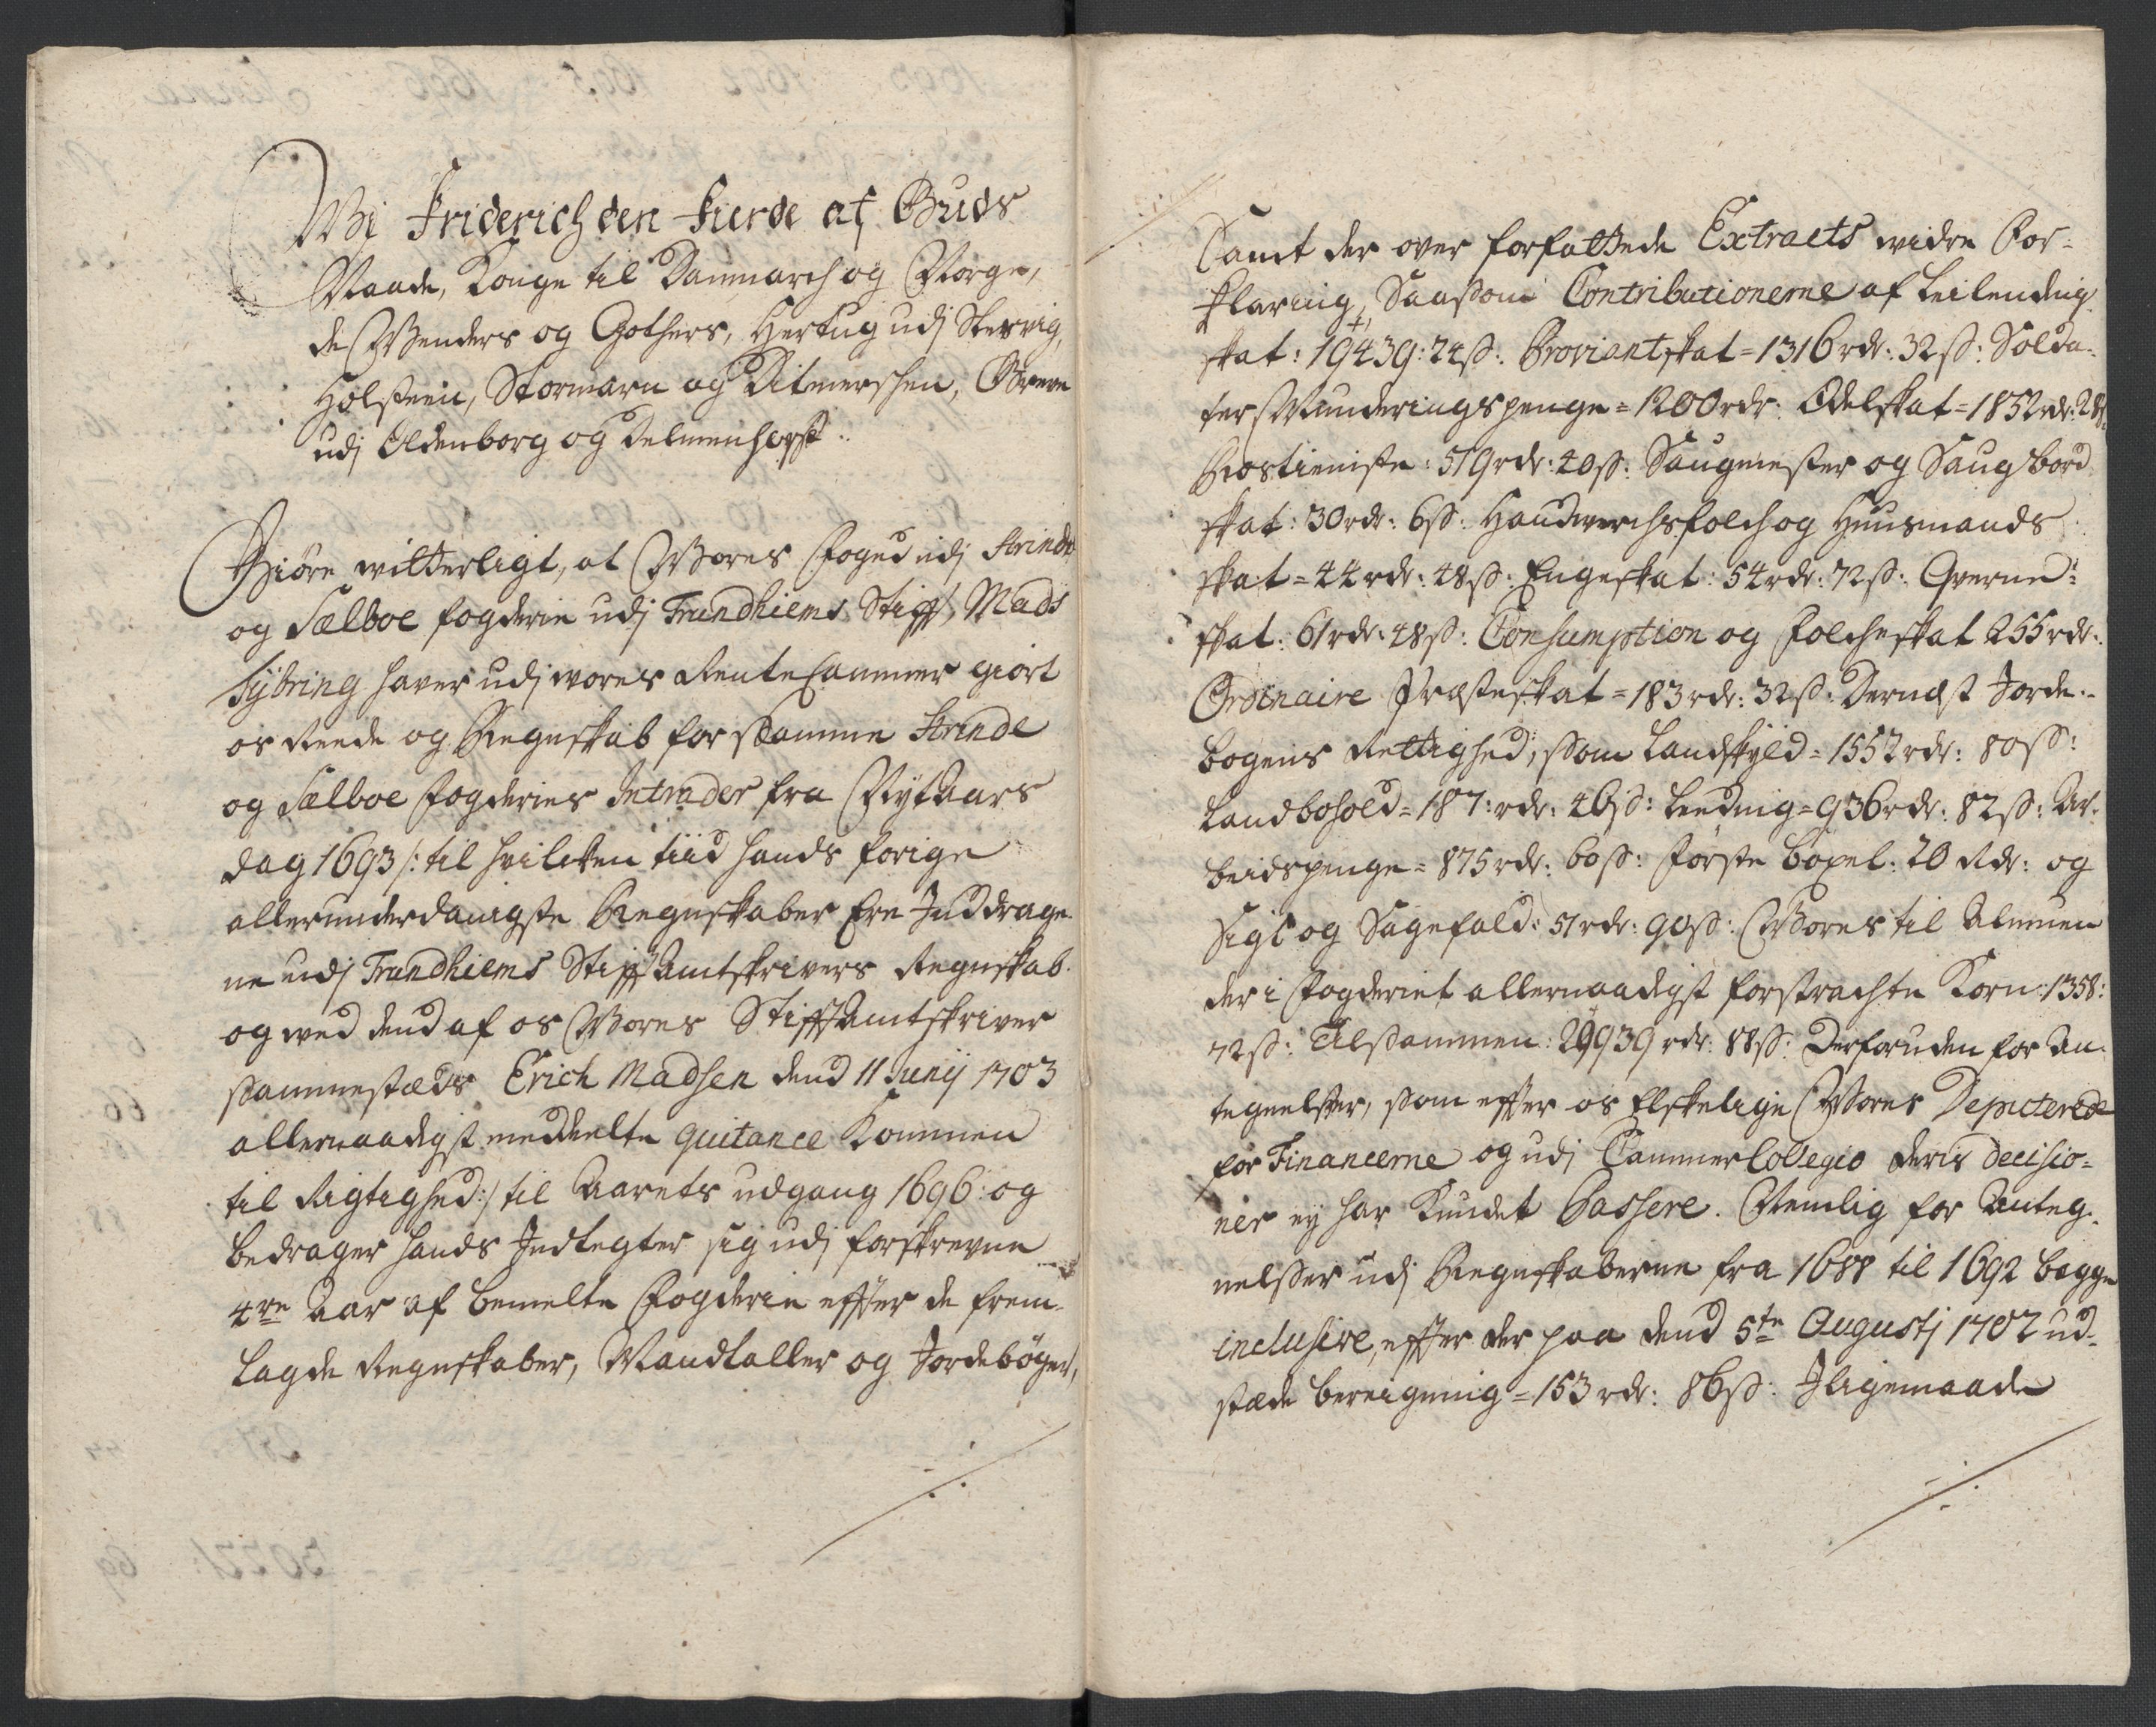 Wi Friderich den Fierde af Guds
Naade, Konge til Danmarch og Norge,
de Wenders og Gothers, Hertug udj Slesvig,
Holsteen, Stormarn og Ditmerschen, Greve
udj Oldenborg og Delmenhorst.
Giöre witterligt, at Wores Foged udj Strinde
og Sælboe fogderie udj Trundhiems Stifft, Mads
Sÿbring haver udj wores Rente Cammer giort
os Reede og Regnskab for samme Strinde
og Sælboe Fogderies Intrader fra Nÿt Aars
dag 1693 /: til hvilcken tiid hands forige
allerunderdanigste Regnskaber Ere Inddrage-
ne udj Trundhiems Stifft Amtskrivers Regnskab
og wed dend af os Wores Stifft Amtskriver
sammestæds Erich Madsen dend 11 Junij 1703
allernaadigst meddeelte quitance Kommen
til Rigtighed :/ til Aarets udgang 1696: og
bedrager hands Indtegter sig udj forskrevne
4re Aar af bemelte Fogderie effter de frem-
lagde Regnskaber, Mandtaller og Jordebøger,
Samt der over forfattede Extracts widre For-
klaring, Saasom Contributionerne af Leilending
skat: 19439: 24ß: Proviantskat = 1316 rdr: 32ß: Solda-
ter Munderingspenge = 1200 rdr: Odelskat = 1852 rdr: 28
Rostieniste: 519 rdr: 40ß: Saugmester og Saugbord
skat: 30 rdr: 6ß: Handwerchsfolch og Huusmands
skat = 44 rdr: 48ß: Engeskat: 54 rdr: 72ß: Qverne-
skat: 61 rdr: 48ß: Consumption og Folcheskat 255 rdr:
Ordinaire Præsteskat = 183 rdr: 32ß: Dernæst Jorde-
bogens Rettighed, som Landskyld = 1552 rdr: 80ß:
Landbohold = 187: rdr: 46ß: Leeding = 936 rdr: 82ß: Ar-
beidspenge = 875 rdr: 60ß: Förste böxel: 20 Rdr: og
Sigt og Sagefald: 51 rdr: 90ß: Wores til Almuen
der i Fogderiet allernaadigst forstrachte Korn: 1358:
72ß: Tilsammen: 29939 rdr: 88ß: Derforuden for An-
tegnelser, som effter os Elskelige Wores Deputerede
for Financerne og udj Cammer Collegio deris decisio-
ner ej har Kundet Passere. Nemlig for Anteg-
nelser udj Regnskaberne fra 1688 til 1692 begge
inclusive, effter der paa dend 5te Augustj 1702 ud-
stæde bereigning = 153 rdr: 86ß: Iligemaade